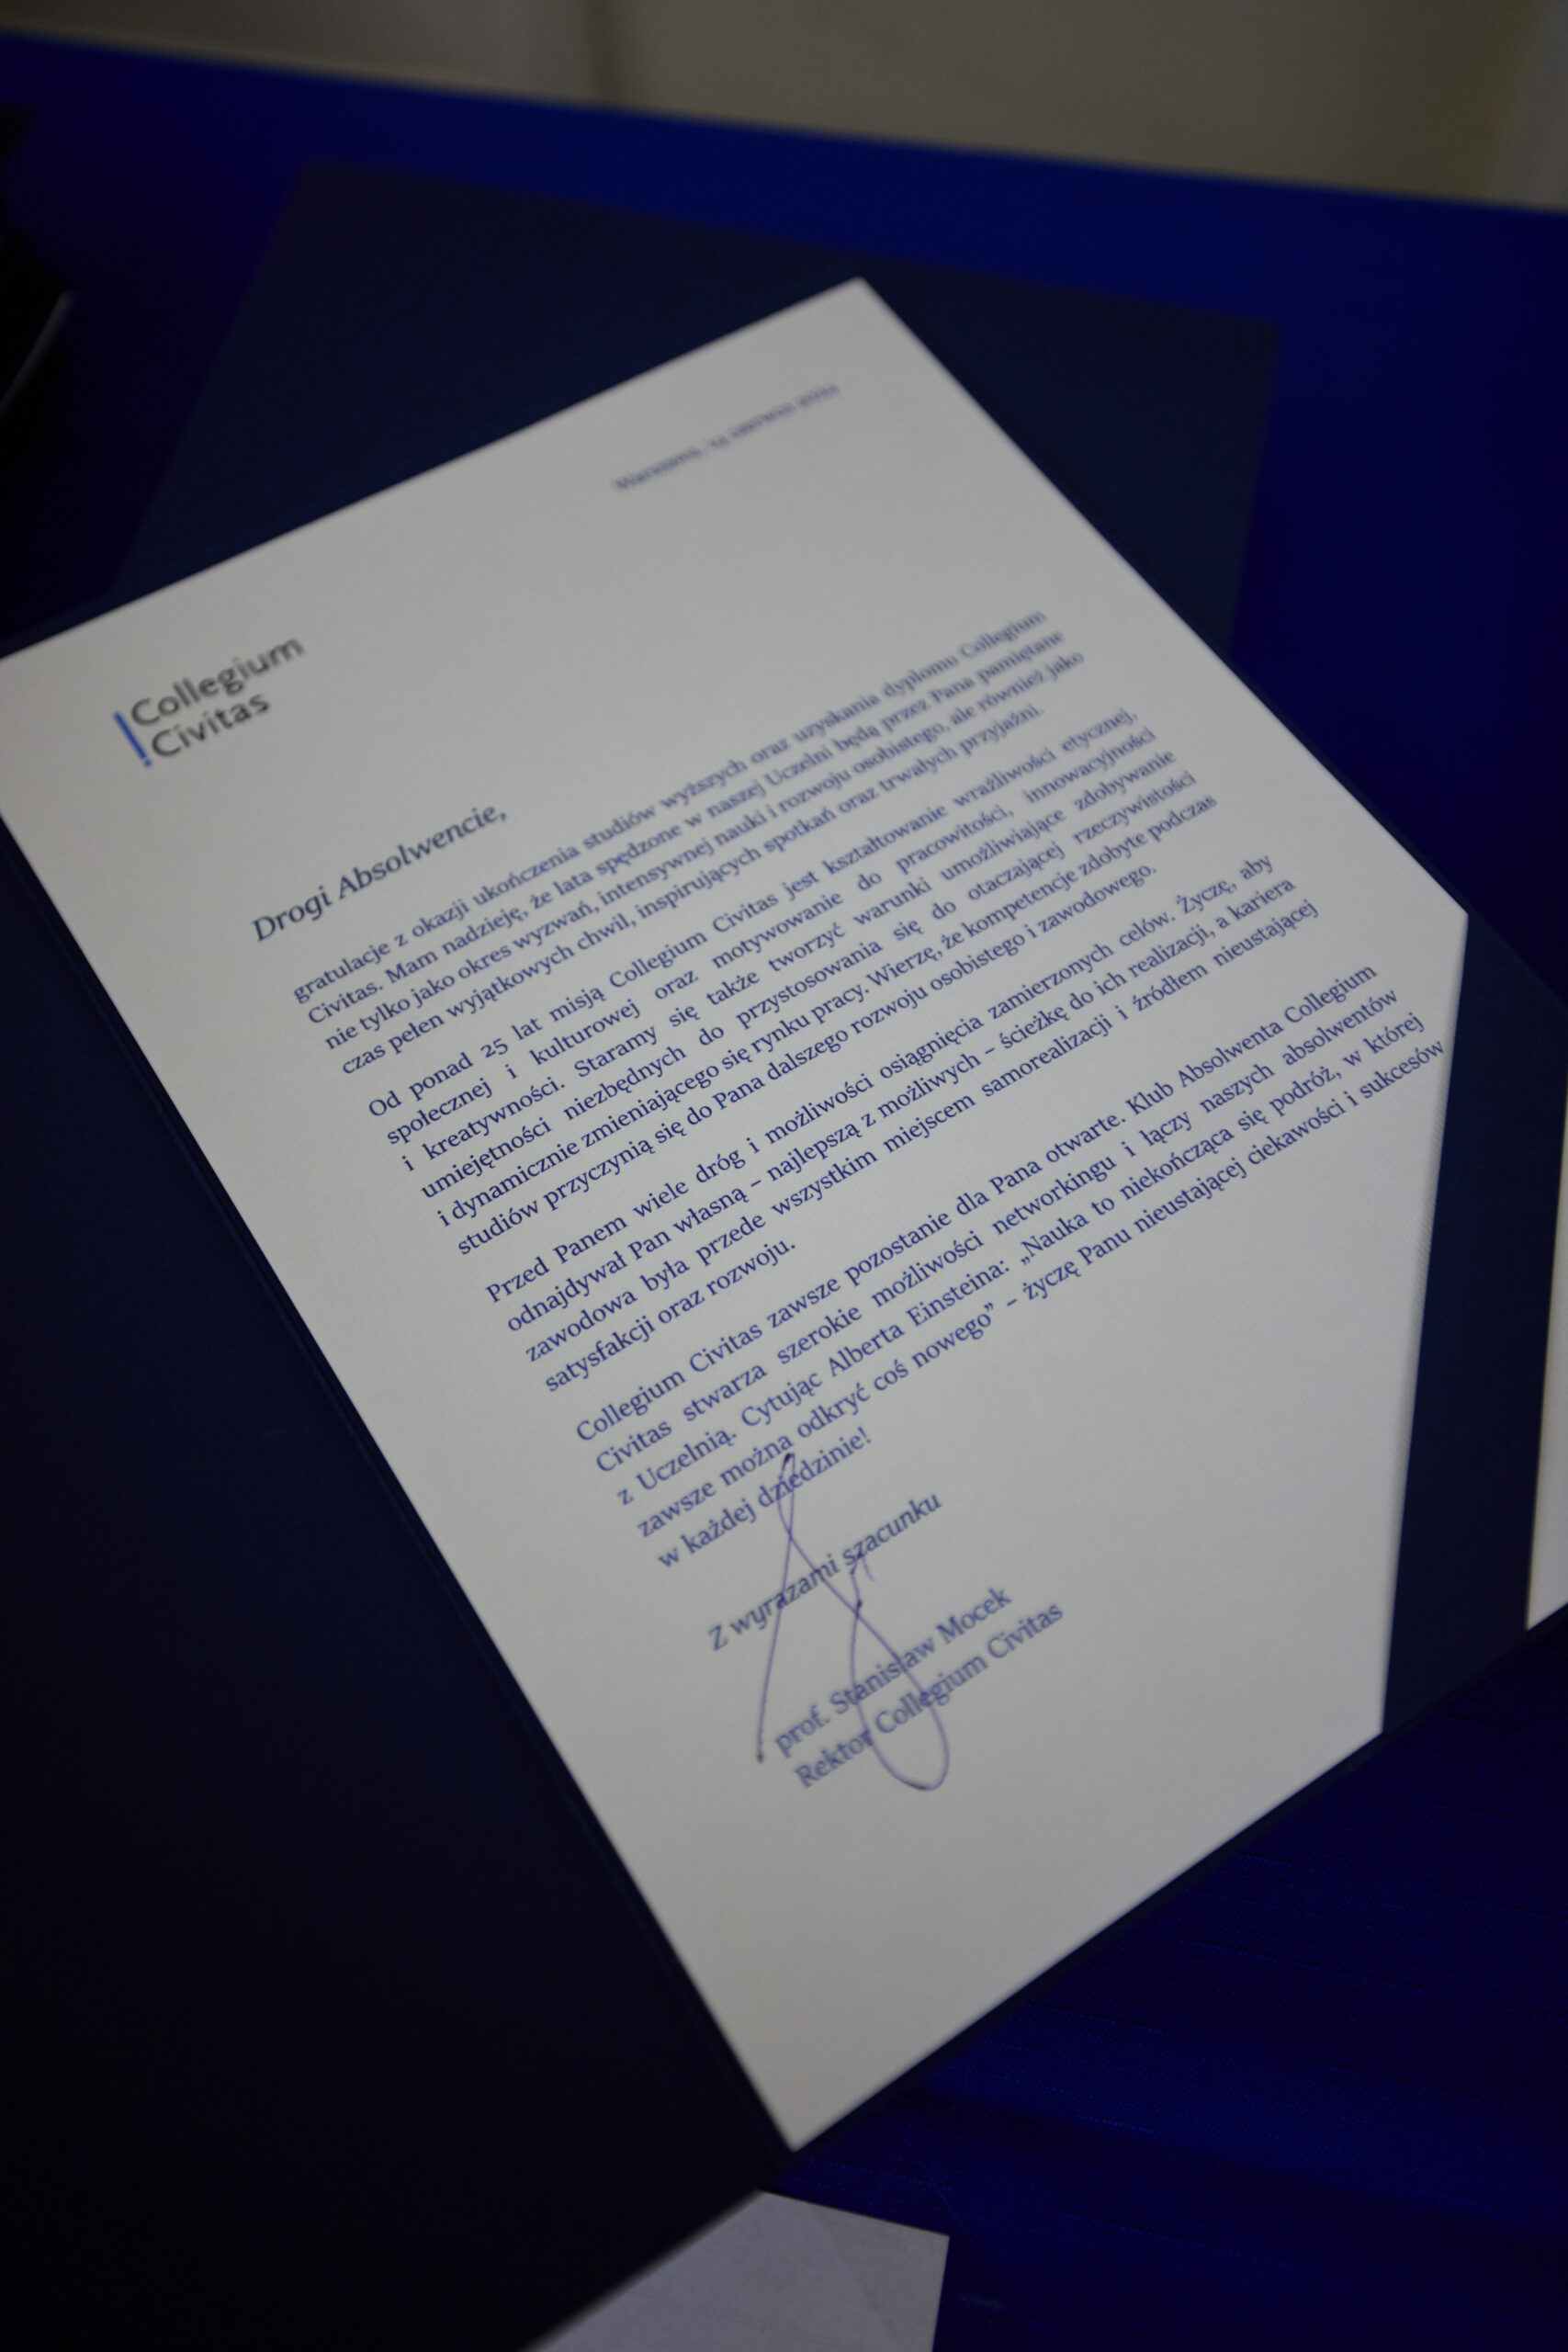 Warszawa, czerwca
Collegium
Civitas
Drogi Absolwencie,
gratulacje z okazji ukończenia studiów wyższych oraz uzyskania dyplomu Collegium
Civitas. Mam nadzieję, że lata spędzone w naszej Uczelni będą przez Pana pamiętane
nie tylko jako okres wyzwań, intensywnej nauki i rozwoju osobistego, ale również jako
czas pełen wyjątkowych chwil, inspirujących spotkań oraz trwałych przyjaźni.
Od ponad 25 lat misją Collegium Civitas jest kształtowanie wrażliwości etycznej,
społecznej i kulturowej oraz motywowanie do pracowitości, innowacyjności
i kreatywności. Staramy się także tworzyć warunki umożliwiające zdobywanie
umiejętności niezbędnych do przystosowania się do otaczającej rzeczywistości
i dynamicznie zmieniającego się rynku pracy. Wierzę, że kompetencje zdobyte podczas
studiów przyczynią się do Pana dalszego rozwoju osobistego i zawodowego.
Przed Panem wiele dróg i możliwości osiągnięcia zamierzonych celów. Życzę, aby
odnajdywał Pan własną – najlepszą z możliwych – ścieżkę do ich realizacji, a kariera
zawodowa była przede wszystkim miejscem samorealizacji i źródłem nieustającej
satysfakcji oraz rozwoju.
Collegium Civitas zawsze pozostanie dla Pana otwarte. Klub Absolwenta Collegium
Civitas stwarza szerokie możliwości networkingu i łączy naszych absolwentów
z Uczelnią. Cytując Alberta Einsteina: „Nauka to niekończąca się podróż, w której
zawsze można odkryć coś nowego” – życzę Panu nieustającej ciekawości i sukcesów
w każdej dziedzinie!
Z wyrazami szacunku
prof. Stanisław Mocek
Rektor Collegium Civitas